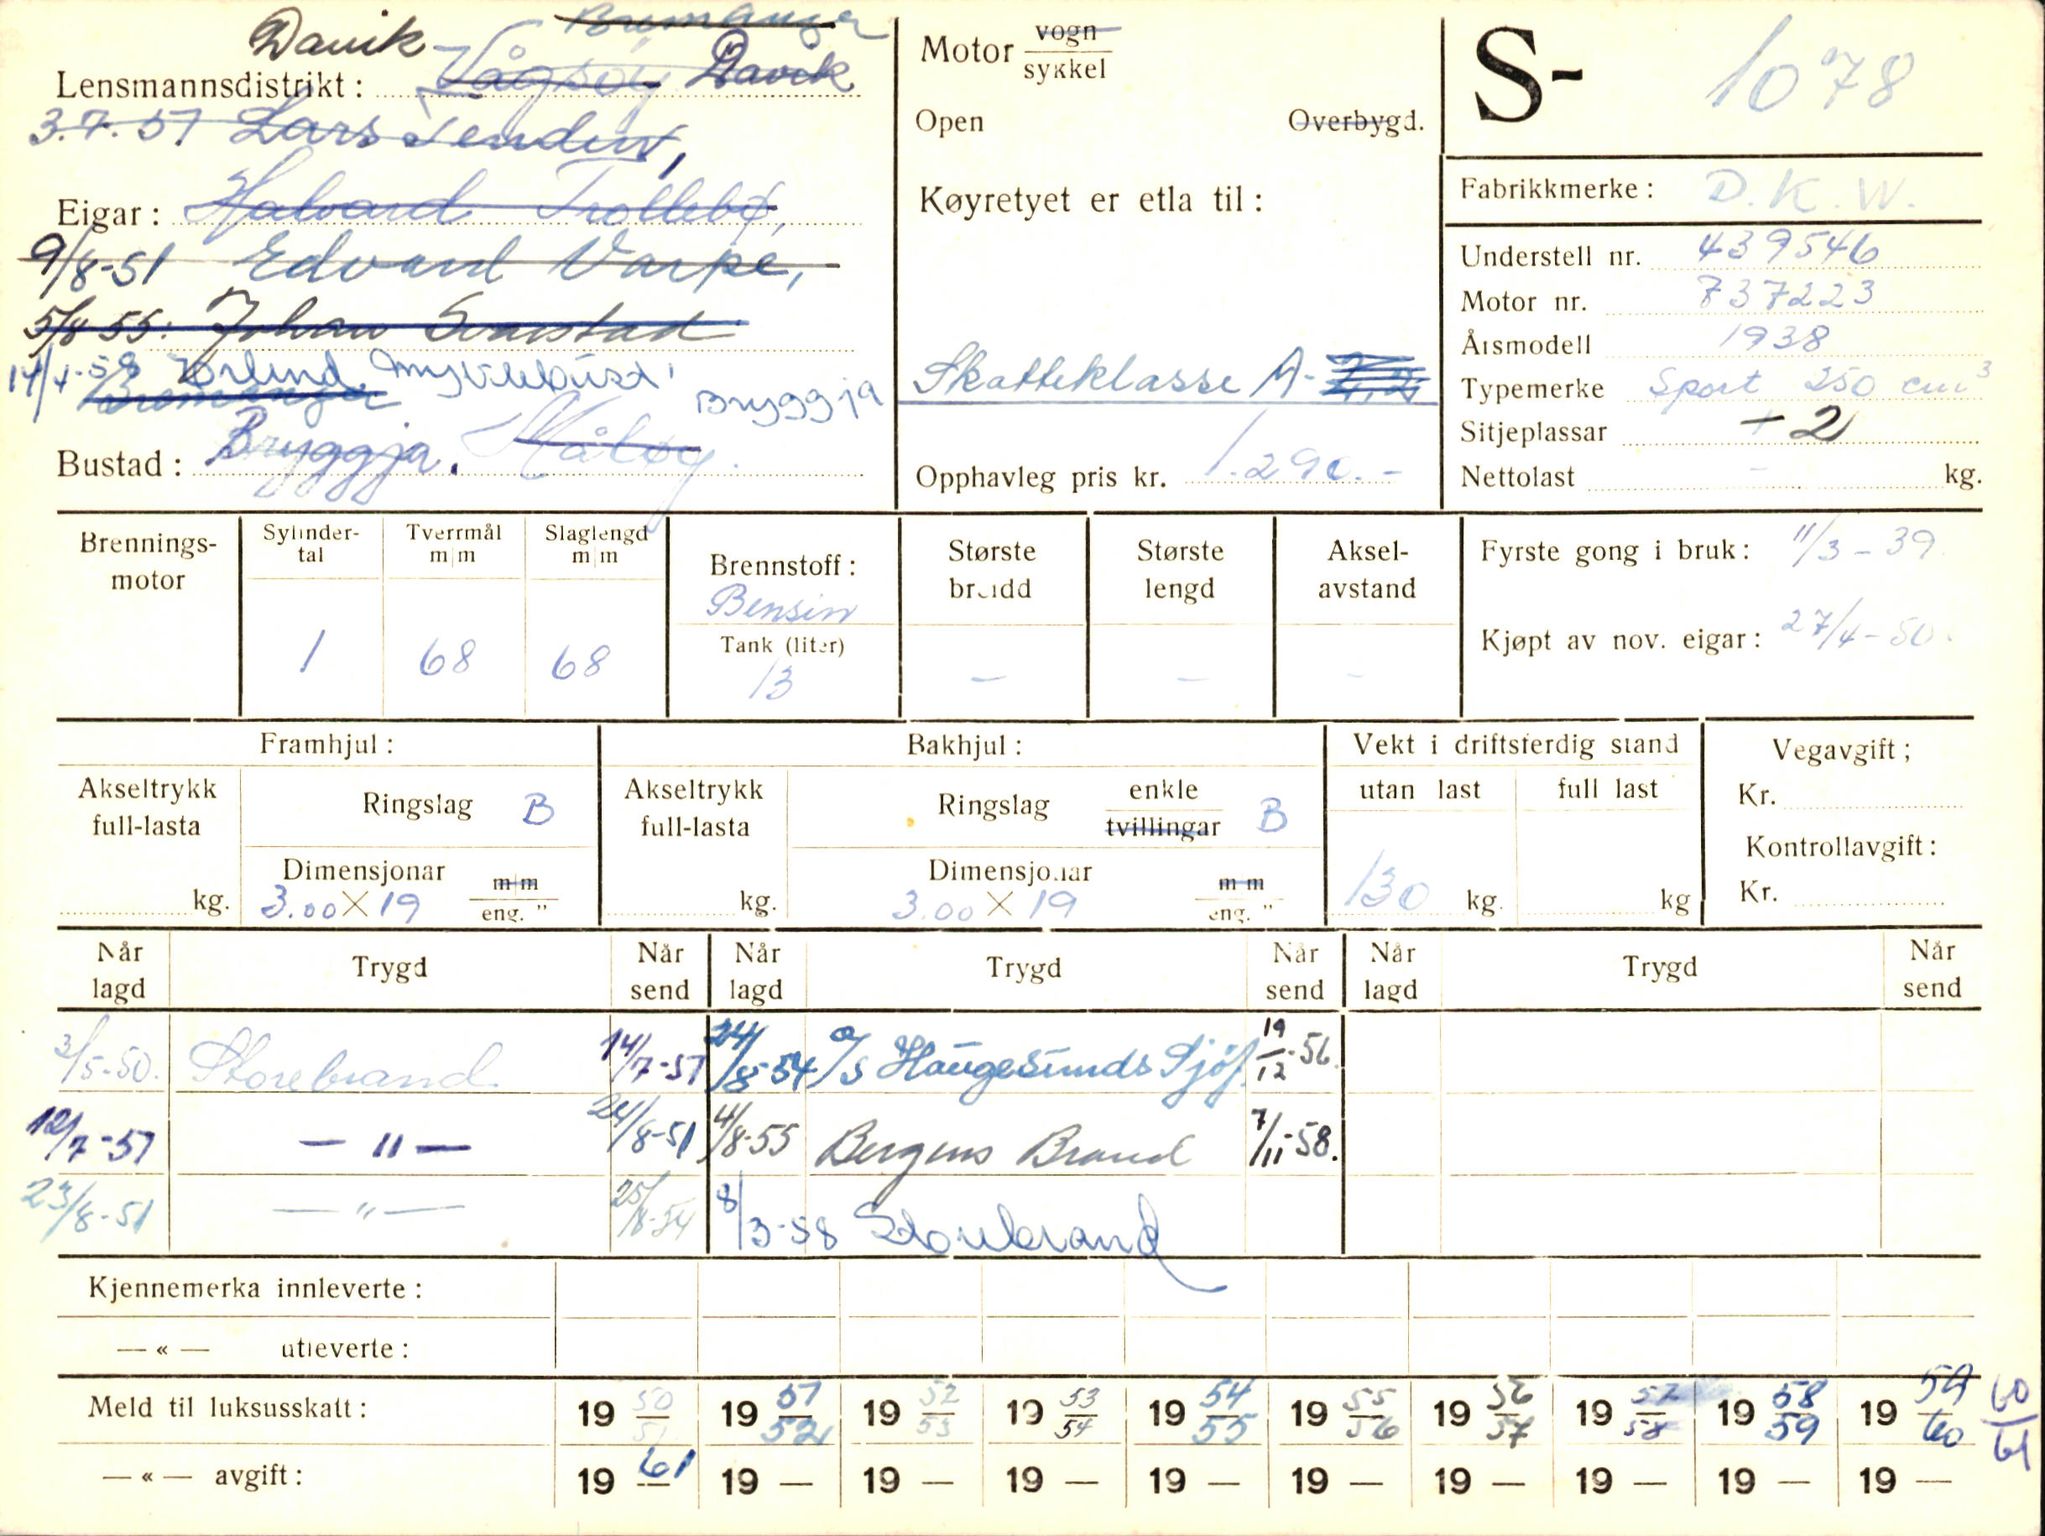 Davik Bremanger
Lensmannsdistrikt: Vågsøy Davik
3.7.51 Lars
Eigar: Halvard Trollebø,
9/8-51 Edvard Varpe,
5/8 55: Johan
14/4-58 Erlend Myklebust,
Bremanger Bryggja
Bustad: Bryggja. Måløy.
Motor vogn
sykkel
Open Overbygd.
Køyretyet er etla til:
Skatteklasse A-
Opphavleg pris kr. 1.290.-
S- 1078
Fabrikkmerke: D.K.W.
Understell nr. 439546
Motor nr. 737223
Årsmodell 1938
Typemerke Sport 250 cm³
Sitjeplassar 2
Nettolast - kg.
Brennings-
motor
Sylinder-
tal
1
Tverrmål
m|m
68
Slaglengd
m|m
68
Brennstoff:
Bensin
Tank (liter)
13
Største
breidd
-
Største
lengd
-
Aksel-
avstand
-
Fyrste gong i bruk: 11/3-39.
Kjøpt av nov. eigar: 27/4-50.
Framhjul:
Akseltrykk
full-lasta
kg.
Ringslag B
Dimensjonar m|m
3.00 X 19 eng. "
Bakhjul:
Akseltrykk
full-lasta
kg.
Ringslag enkle
tvillingar B
Dimensjonar m m
3.00 X 19 eng. "
Vekt i driftsferdig stand
utan last full last
130 kg. kg
Vegavgift;
Kr.
Kontrollavgift:
Kr.
Når
lagd Trygd Når
send Når
lagd Trygd Når
send Når
lagd Trygd Når
send
3/5-50. Storebrand 14/7-51 24/8-54 a/s Haugesunds Sjøf. 19/12-56.
12/7-51 — " — 24/8-51 4/8-55 Bergens Brand 7/11-58.
23/8-51 — " — 25/8-54 8/3-58 Storebrand
Kjennemerka innleverte:
— « — utleverte:
Meld til luksusskatt: 19 50/51 19 51/52 19 52/53 19 53/54 19 54/55 19 55/56 19 56/57 19 57/58 19 58/59 19 59/60 60/61
— « — avgift: 19 61 19 — 19 — 19 — 19 — 19 — 19 — 19 — 19 — 19 —